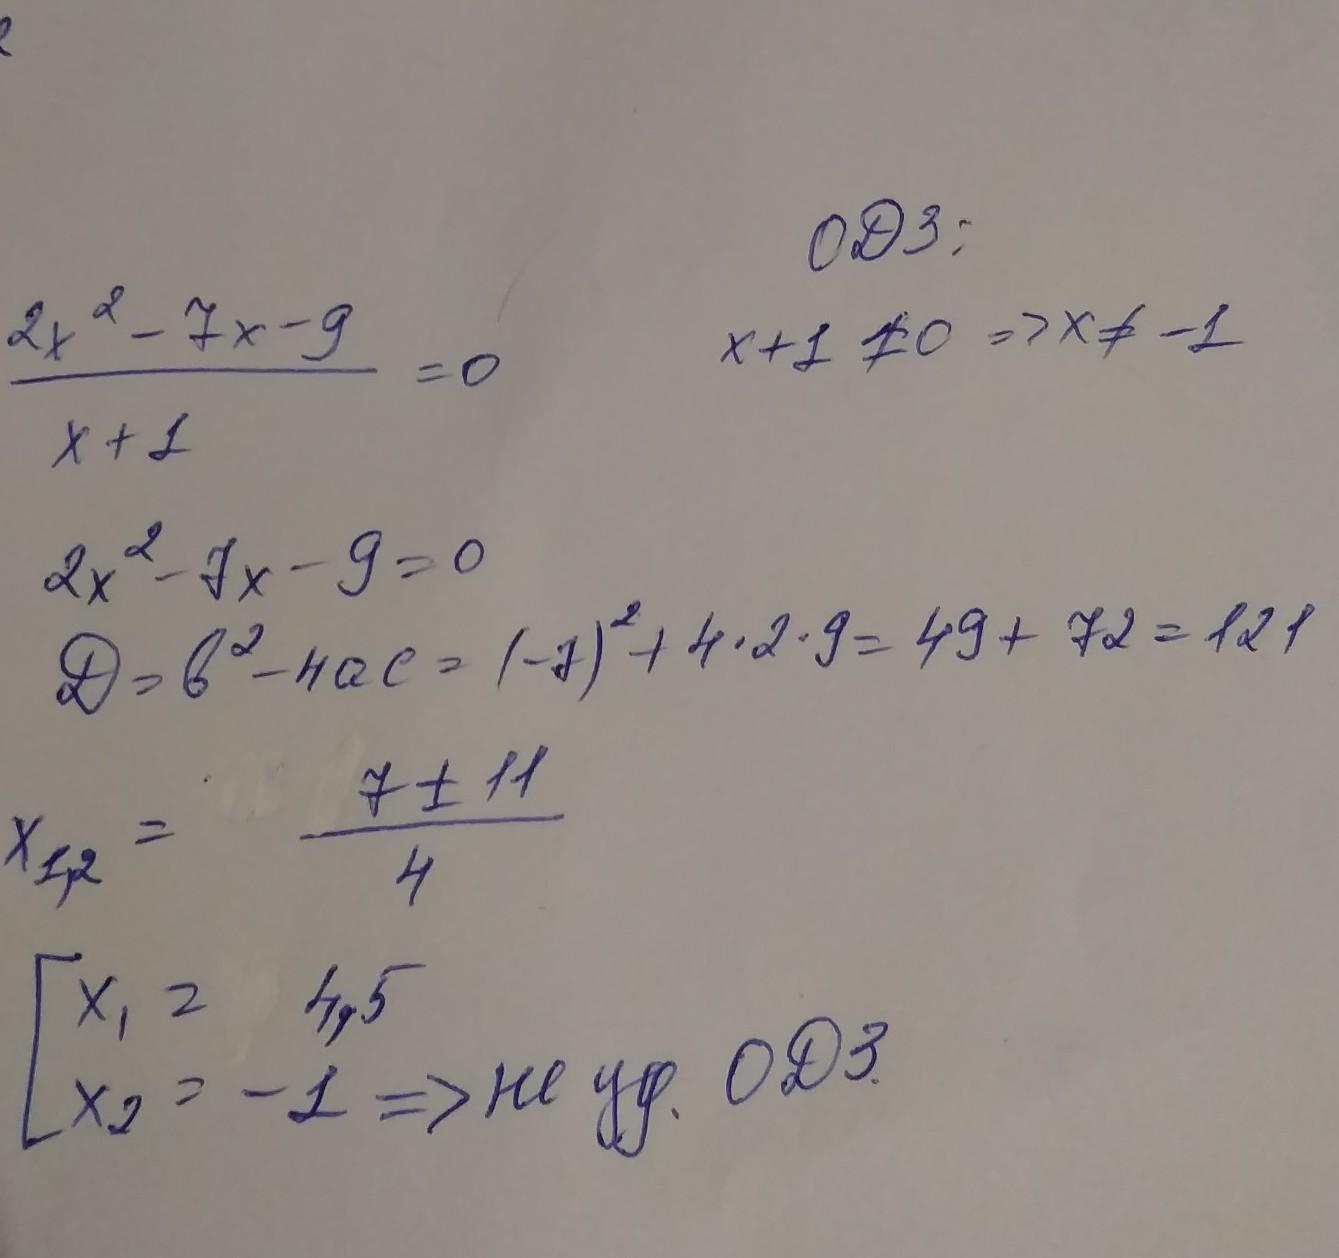 ОДЗ:
x+1 ≠ 0 => x ≠ -1
2x² - 7x - 9
x + 1
= 0
2x² - 7x - 9 = 0
D = b² - 4ac = (-7)² + 4·2·9 = 49 + 72 = 121
x₁,₂ = 7 ± 11
4
x₁ = 4,5
x₂ = -1 => не уд. ОДЗ.